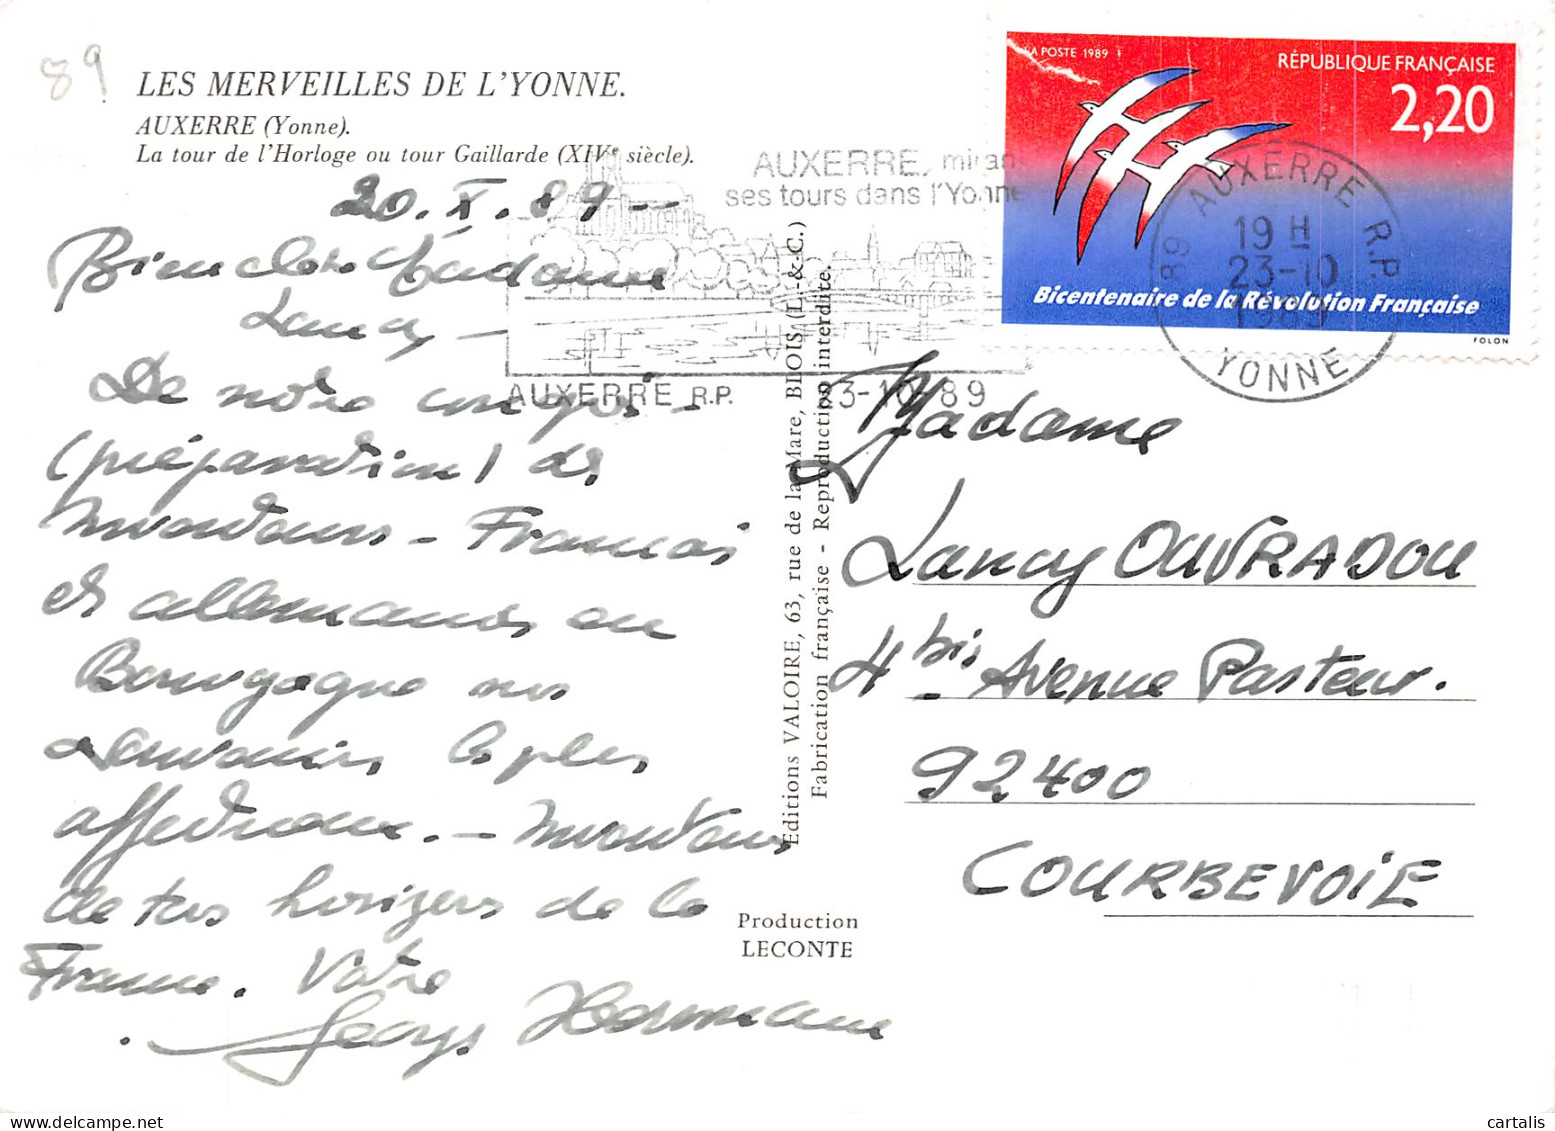 89
LES MERVEILLES DE L'YONNE.
AUXERRE (Yonne).
La tour de l'Horloge ou tour Gaillarde (XIVe siècle).
20. X. 89 -
Bien chère Madame
Lancy -
De notre congrès -
(préparation) de
mentours - Français
et allemands en
Bourgogne mes
souvenirs les plus
affectueux. -
de tous horizons de la
France. Votre
Georges Hermann
AUXERRE, miran
ses tours dans l'Yonne
AUXERRE R.P. 23-10-89
Editions VALOIRE, 63, rue de la Mare, BLOIS (L.-&-C.)
Fabrication française - Reproduction interdite.
Production
LECONTE
LA POSTE 1989
RÉPUBLIQUE FRANÇAISE
2,20
Bicentenaire de la Révolution Française
FOLON
89 AUXERRE R.P.
19 H
23-10
1989
YONNE
Madame
Lancy OUVRADOU
4 bis Avenue Pasteur.
92400
COURBEVOIE
cartalis